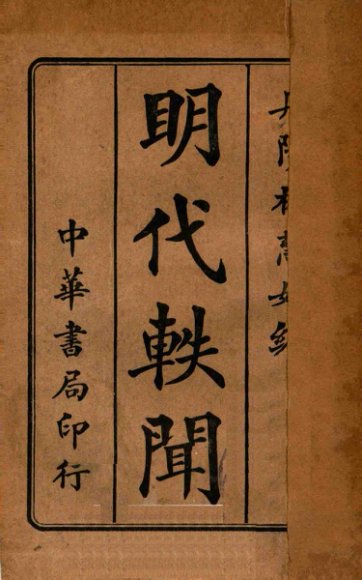 明代軼聞
中華書局印行